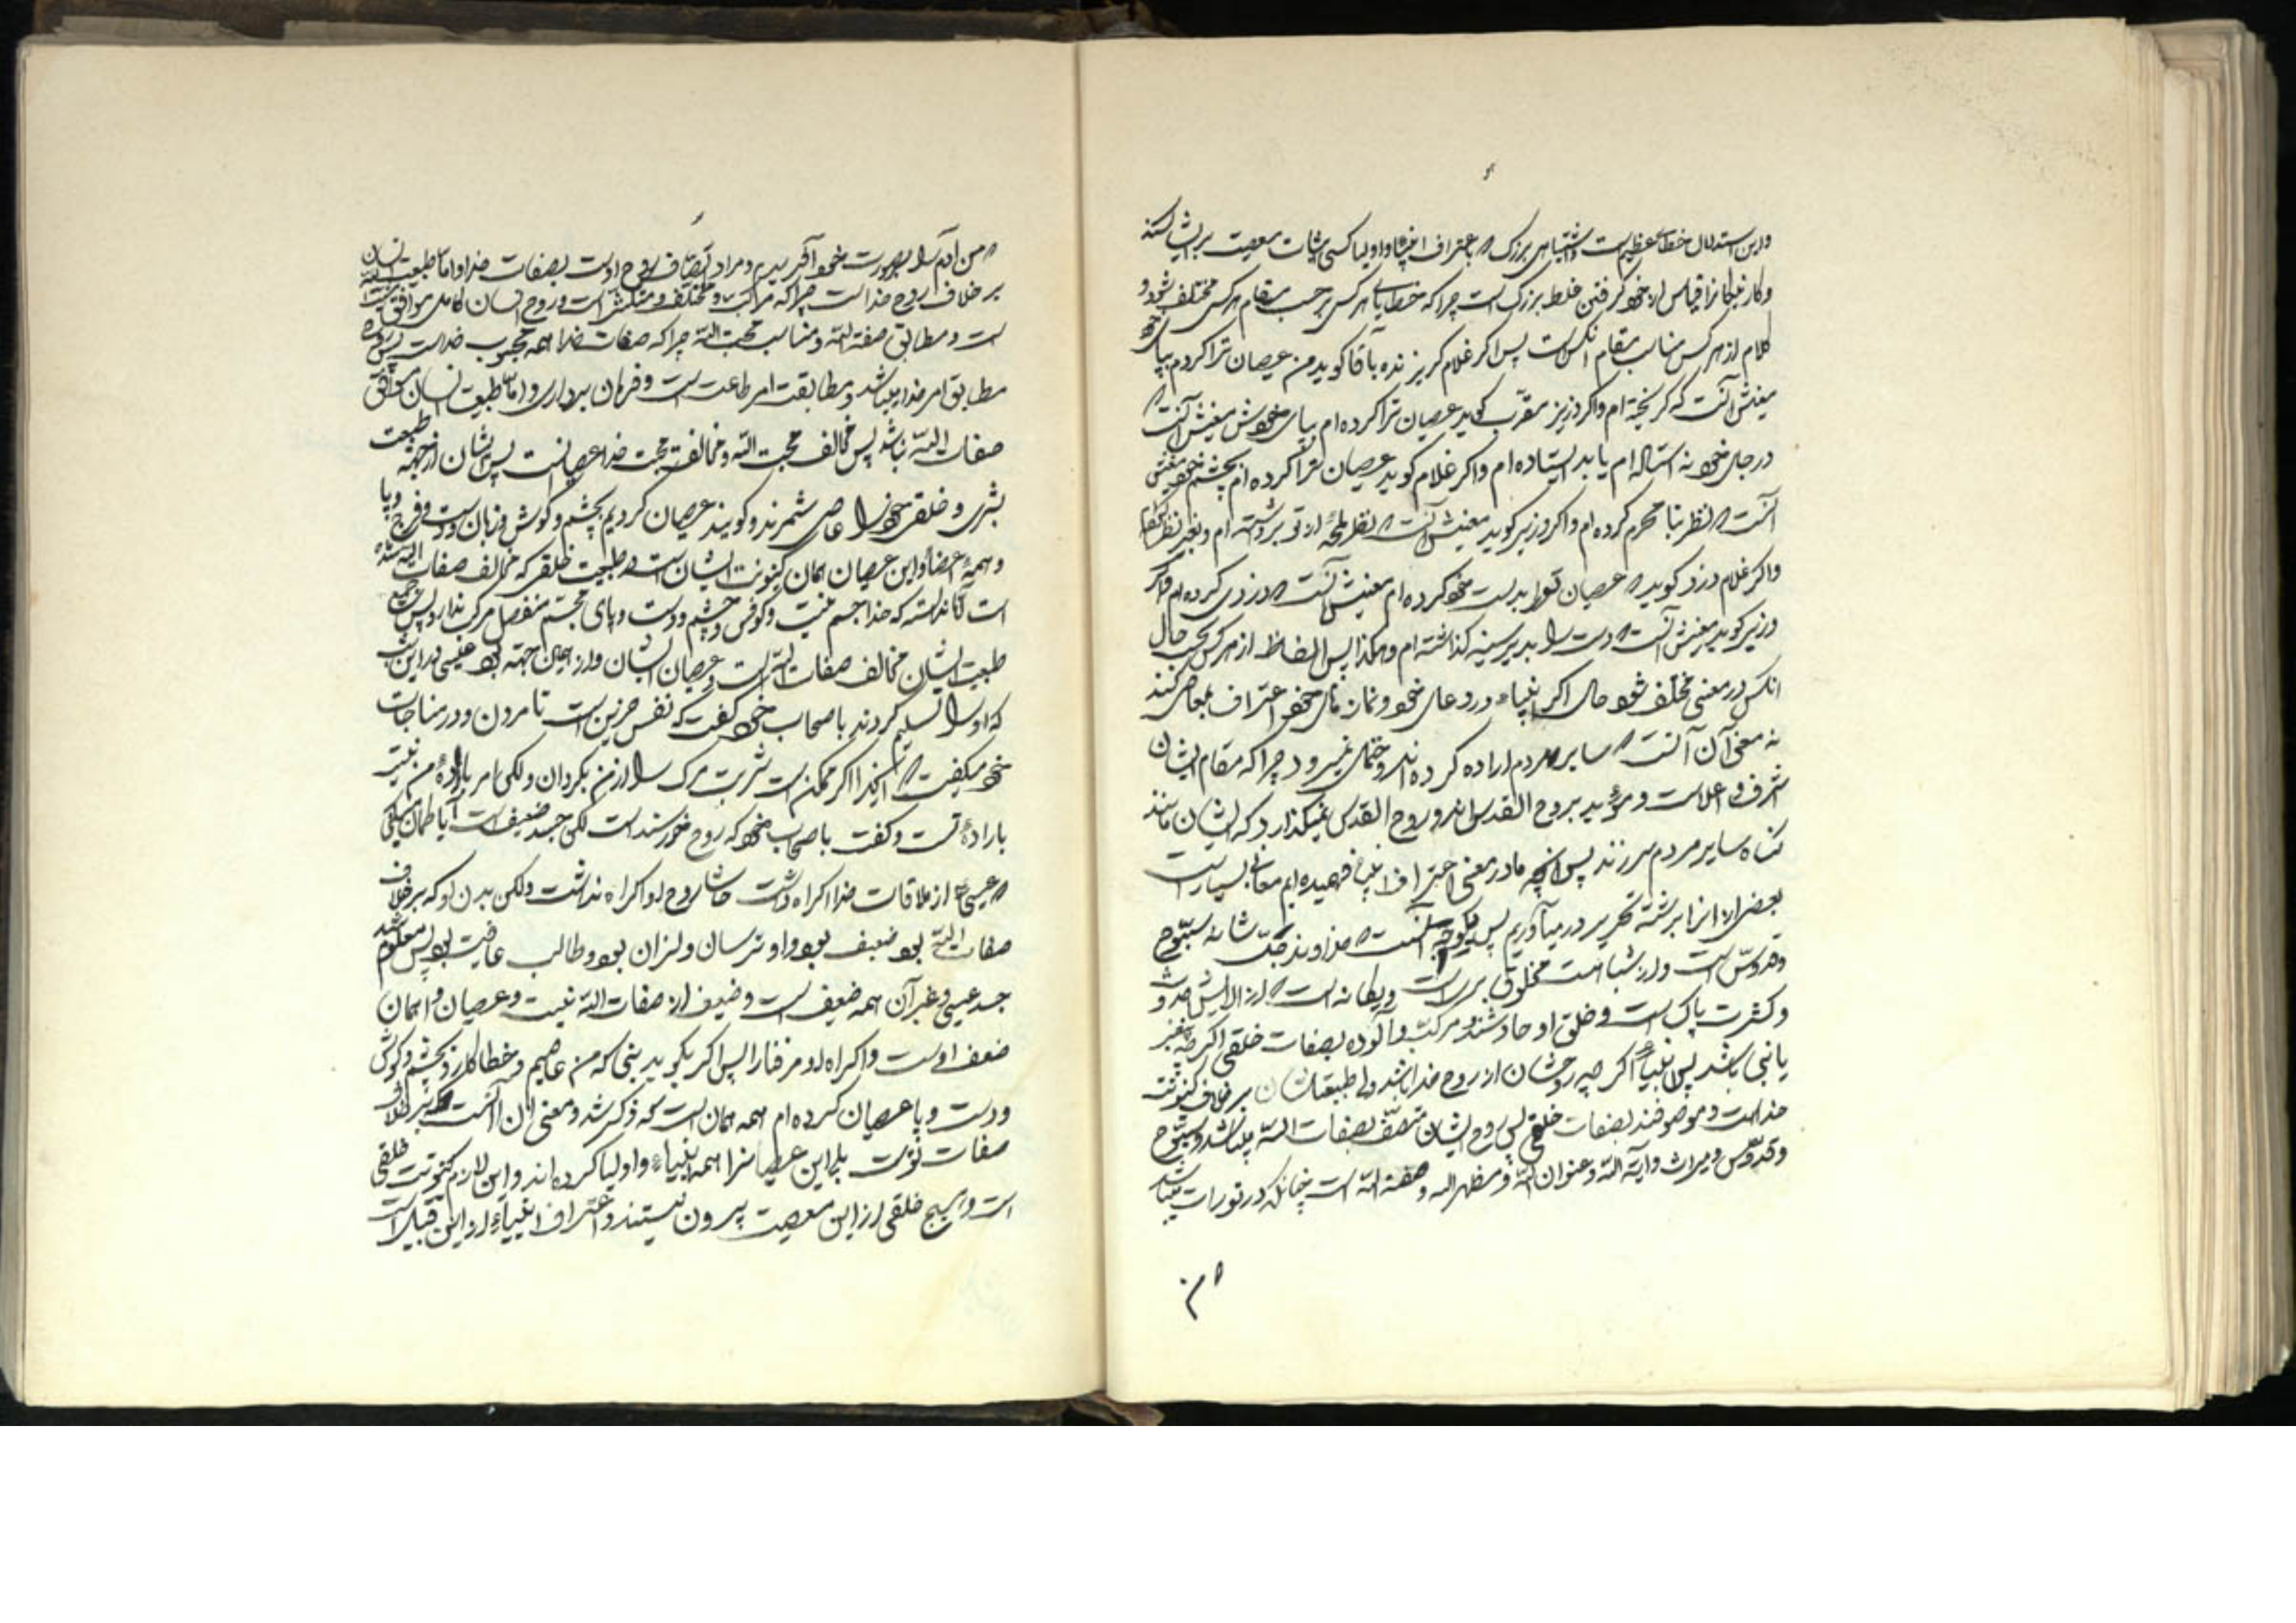 واین استدلال خطای عظیم است و اشتباهی بزرگ که باعتراف انبیا و اولیا کسی اثبات معصیت بر ایشان کند
و کار نیکانرا قیاس از خود گرفتن غلط بزرگ است چرا که خطاهای هر کس بر حسب مقام هر کس مختلف شود و
کلام از هر کس مناسب مقام آنکس است پس اگر غلام گریزنده بآقا گوید من عصیان ترا کردم بپای خود
معنیش آنست که گریخته ام و اگر وزیر مقرب گوید عصیان ترا کرده ام بپای خویش معنیش آنست که
در جای خود نه استاده ام یا بد ایستاده ام و اگر غلام گوید عصیان ترا کرده ام بچشم خود معنیش
آنست که نظر بنا محرم کرده ام و اگر وزیر گوید معنیش آنست که نظر لمحهٔ از تو برداشته ام و بغیر نظر
و اگر غلام دزد گوید که عصیان تو را بدست خود کرده ام معنیش آنست که دزدی کرده ام و اگر
وزیر گوید معنیش آنست که دست را بد بر سینه گذاشته ام و هکذا پس الفاظ از هر کس بحسب حال
آنکس در معنی مختلف شود حال اگر انبیاء در دعای خود و نمازهای خود اعتراف بمعاصی کنند
نه معنی آن آنست که سایر مردم اراده کرده اند و ختمای نمیرود چرا که مقام ایشان
اشرف و اعلاست و مؤید بروح القدس اند و روح القدس نمیگذارد که ایشان مانند
گناه سایر مردم سر زند پس آنچه ما در معنی اعتراف انبیا فهمیده ایم معانی بسیار است
بعضی از آنرا برشته تحریر در میآوریم پس یکوجه آنست که خداوند جلّ شانه سبّوح
و قدّوس است و از شباهت مخلوق بری است و یگانه است که از آلایش حدوث
و کثرت پاک است و خلق او حادثند و مرکب و آلوده بصفات خلقی اگر چه پیغمبر
یا نبی باشد پس انبیاء اگر چه روحشان از روح خدا باشد ولی طبیعتشان بر خلاف کینونت
خداست و موصوفند بصفات خلقی پس روح ایشان متصف بصفات الله میباشد و سبّوح
و قدّوس و میراث و آیة الله و عنوان الله و مظهر الله و صفة الله است چنانکه در تورات میباشد
که من
که من آدم را بصورت خود آفریدم و مراد اتصاف روح اوست بصفات خدا و اما طبیعت انسان
بر خلاف روح خداست چرا که مرکب و مختلف و متکثر است و روح انسان کامل موافق
است و مطابق صفة الله و مناسب محبت الله چرا که صفات خدا همه محبوب خداست پس روح
مطابق امر خدا میباشد و مطابقت امر طاعت است و فرمان برداری و اما طبیعت انسان موافق
صفات الله نباشد پس مخالف محبت الله و مخالفت محبت خدا عصیانست پس ایشان از جهة طبیعت
بشری و خلقی خود را عاصی شمرند و گویند عصیان کردیم بچشم و گوش و زبان و دست و فرج و پا
و همهٔ اعضا و این عصیان همان کینونت ایشان است و طبیعت خلقی که مخالف صفات الله شده
است آیا ندانسته که خدا جسم نیست و گوش و چشم و دست و پای مجسّم منفصل مرکب ندارد پس جمیع
طبیعت ایشان مخالف صفات الله است و عصیان ایشان و از همین جهة بود عیسی در این شب
که او را تسلیم کردند باصحاب خود گفت که نفس حزین است تا مردن و در مناجات
خود میگفت که ای خدا اگر ممکن است شربت مرگ را از من بگردان ولکن امر بارادهٔ من نیست
بارادهٔ تست و گفت باصحاب خود که روح خورسند است لکن جسد ضعیف است آیا گمان میکنی
که عیسی از ملاقات خدا اکراه داشت حاشا روح او اکراه نداشت ولکن بدن او که بر خلاف
صفات الله بود ضعیف بود و او ترسان و لرزان بود و طالب عافیت بود پس معلوم شد
جسد عیسی و غیر آن همه ضعیف است و ضعیف از صفات الله نیست و عصیان او همان
ضعف اوست و اکراه او مر فنا را پس اگر بگوید نبی که من عاصیم و خطاکار و بچشم و گوش
و دست و پا عصیان کرده ام همه همان است که ذکر شد و معنی آن آنست که بر خلاف
صفات تؤست بلی این عصیانرا همه انبیاء و اولیا کرده اند و این لازم کینونت خلقی
است و هیچ خلقی از این معصیت بیرون نیستند و اعتراف انبیاء از این قبیل است